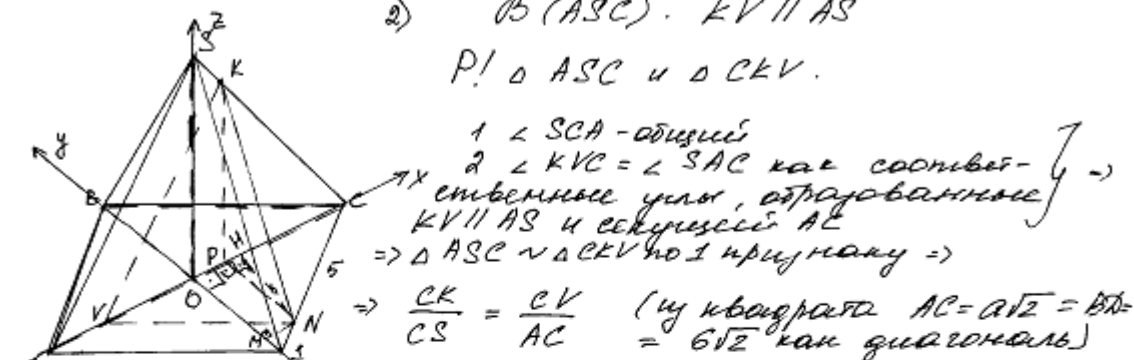 2) В (ASC). KV || AS
P! △ ASC и △ CKV.
1 ∠ SCA - общий
2 ∠ KVC = ∠ SAC как соответ-
ственные углы, образованные
KV || AS и секущей AC
=> △ ASC ~ △ CKV по 1 признаку =>
=> CK/CS = CV/AC (из квадрата AC = a√2 = BD =
= 6√2 как диагональ)
Z
S
K
y
B
C
X
P
H
O
V
N
M
5
1